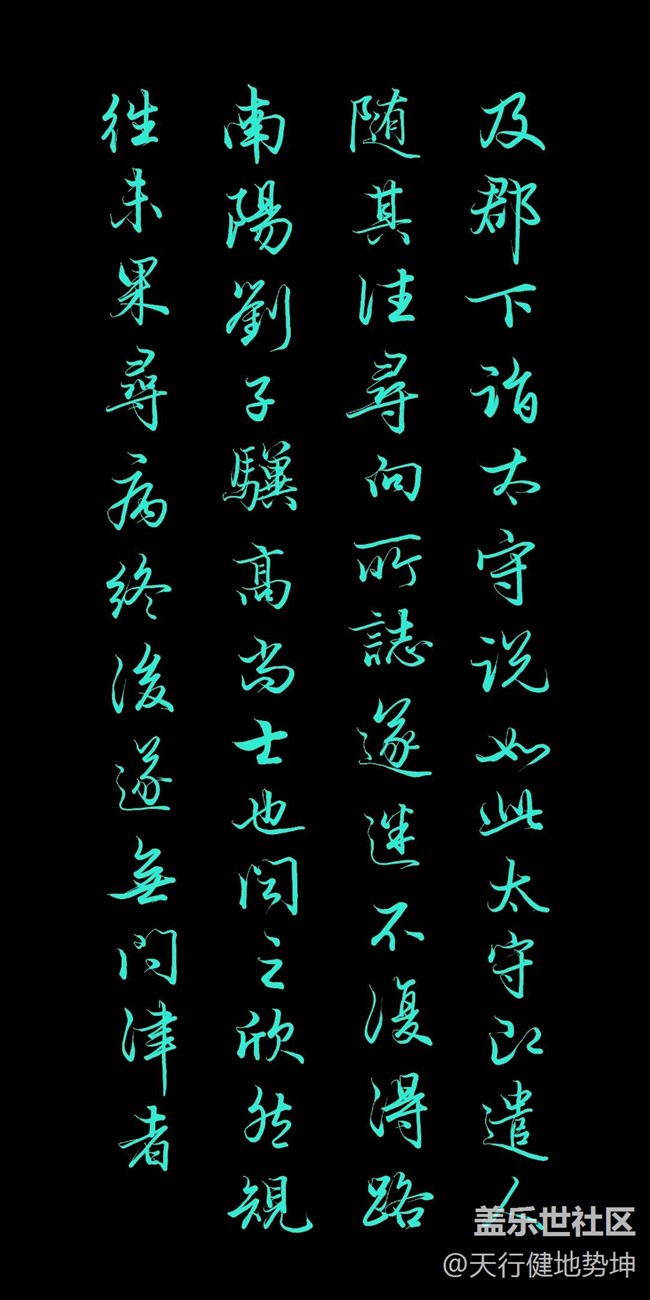 及郡下詣太守说如此太守即遣人
随其往尋向所誌遂迷不復得路
南陽劉子驥高尚士也闻之欣然規
往未果尋病終後遂無問津者
盖乐世社区
@天行健地势坤